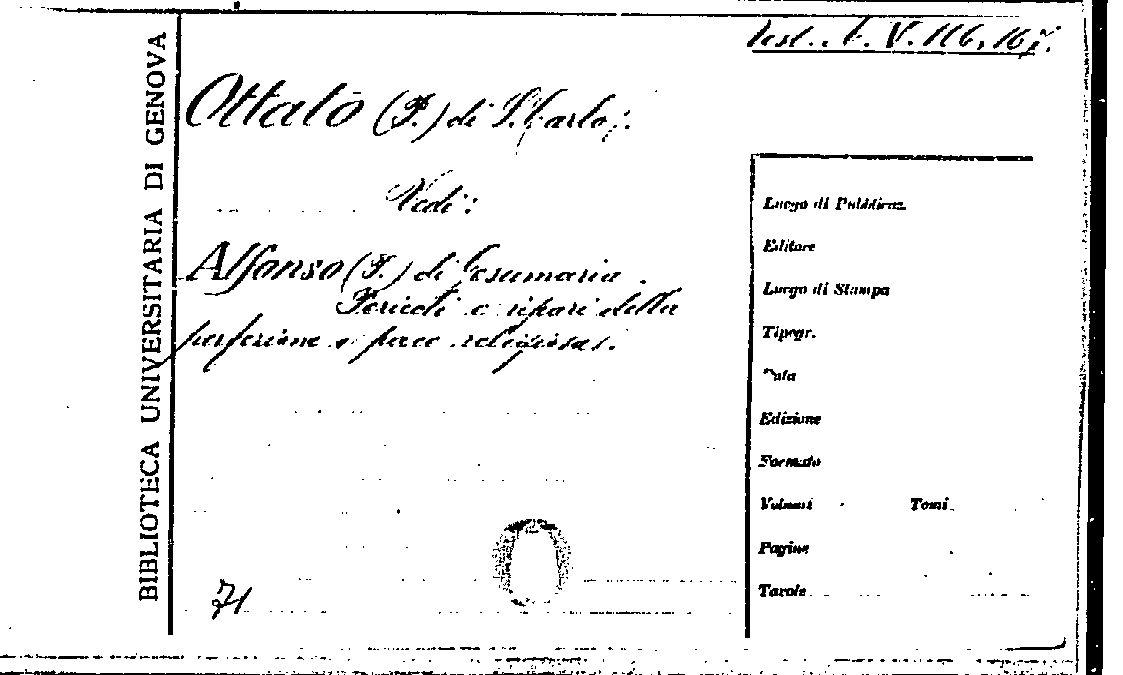 BIBLIOTECA UNIVERSITARIA DI GENOVA
Test.. t. V. 116, 167.
Ottato (P.) di S. Carlo;.
Vedi:
Alfonso (P.) di Gesumaria.
Pericoli e ripari della
perfezione e pace religiosa.
71
Luogo di Pubblicaz.
Editore
Luogo di Stampa
Tipogr.
Data
Edizione
Formato
Volumi Tomi
Pagine
Tavole